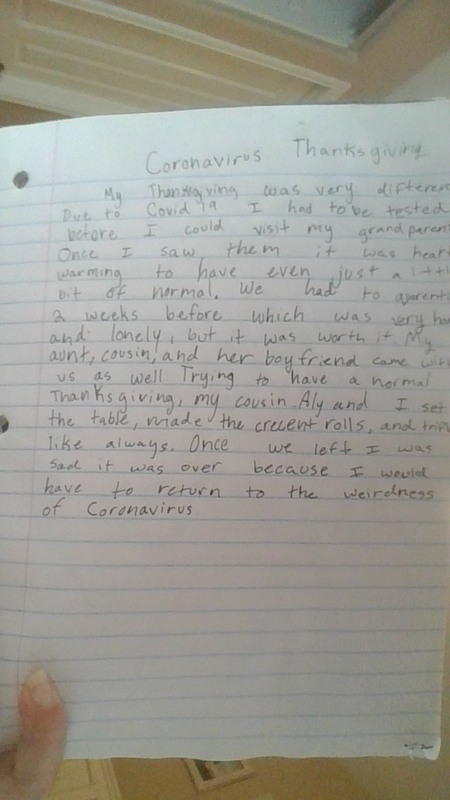 Coronavirus Thanksgiving
My Thanksgiving was very differen
Due to Covid 19 I had to be tested
before I could visit my grandparen
Once I saw them it was heart
warming to have even just a littl
bit of normal. We had to
2 weeks before which was very ha
and lonely, but it was worth it My
aunt, cousin, and her boyfriend came with
us as well Trying to have a normal
Thanksgiving, my cousin Aly and I set
the table, made the crecent rolls, and
like always. Once we left I was
sad it was over because I would
have to return to the weirdness
of Coronavirus